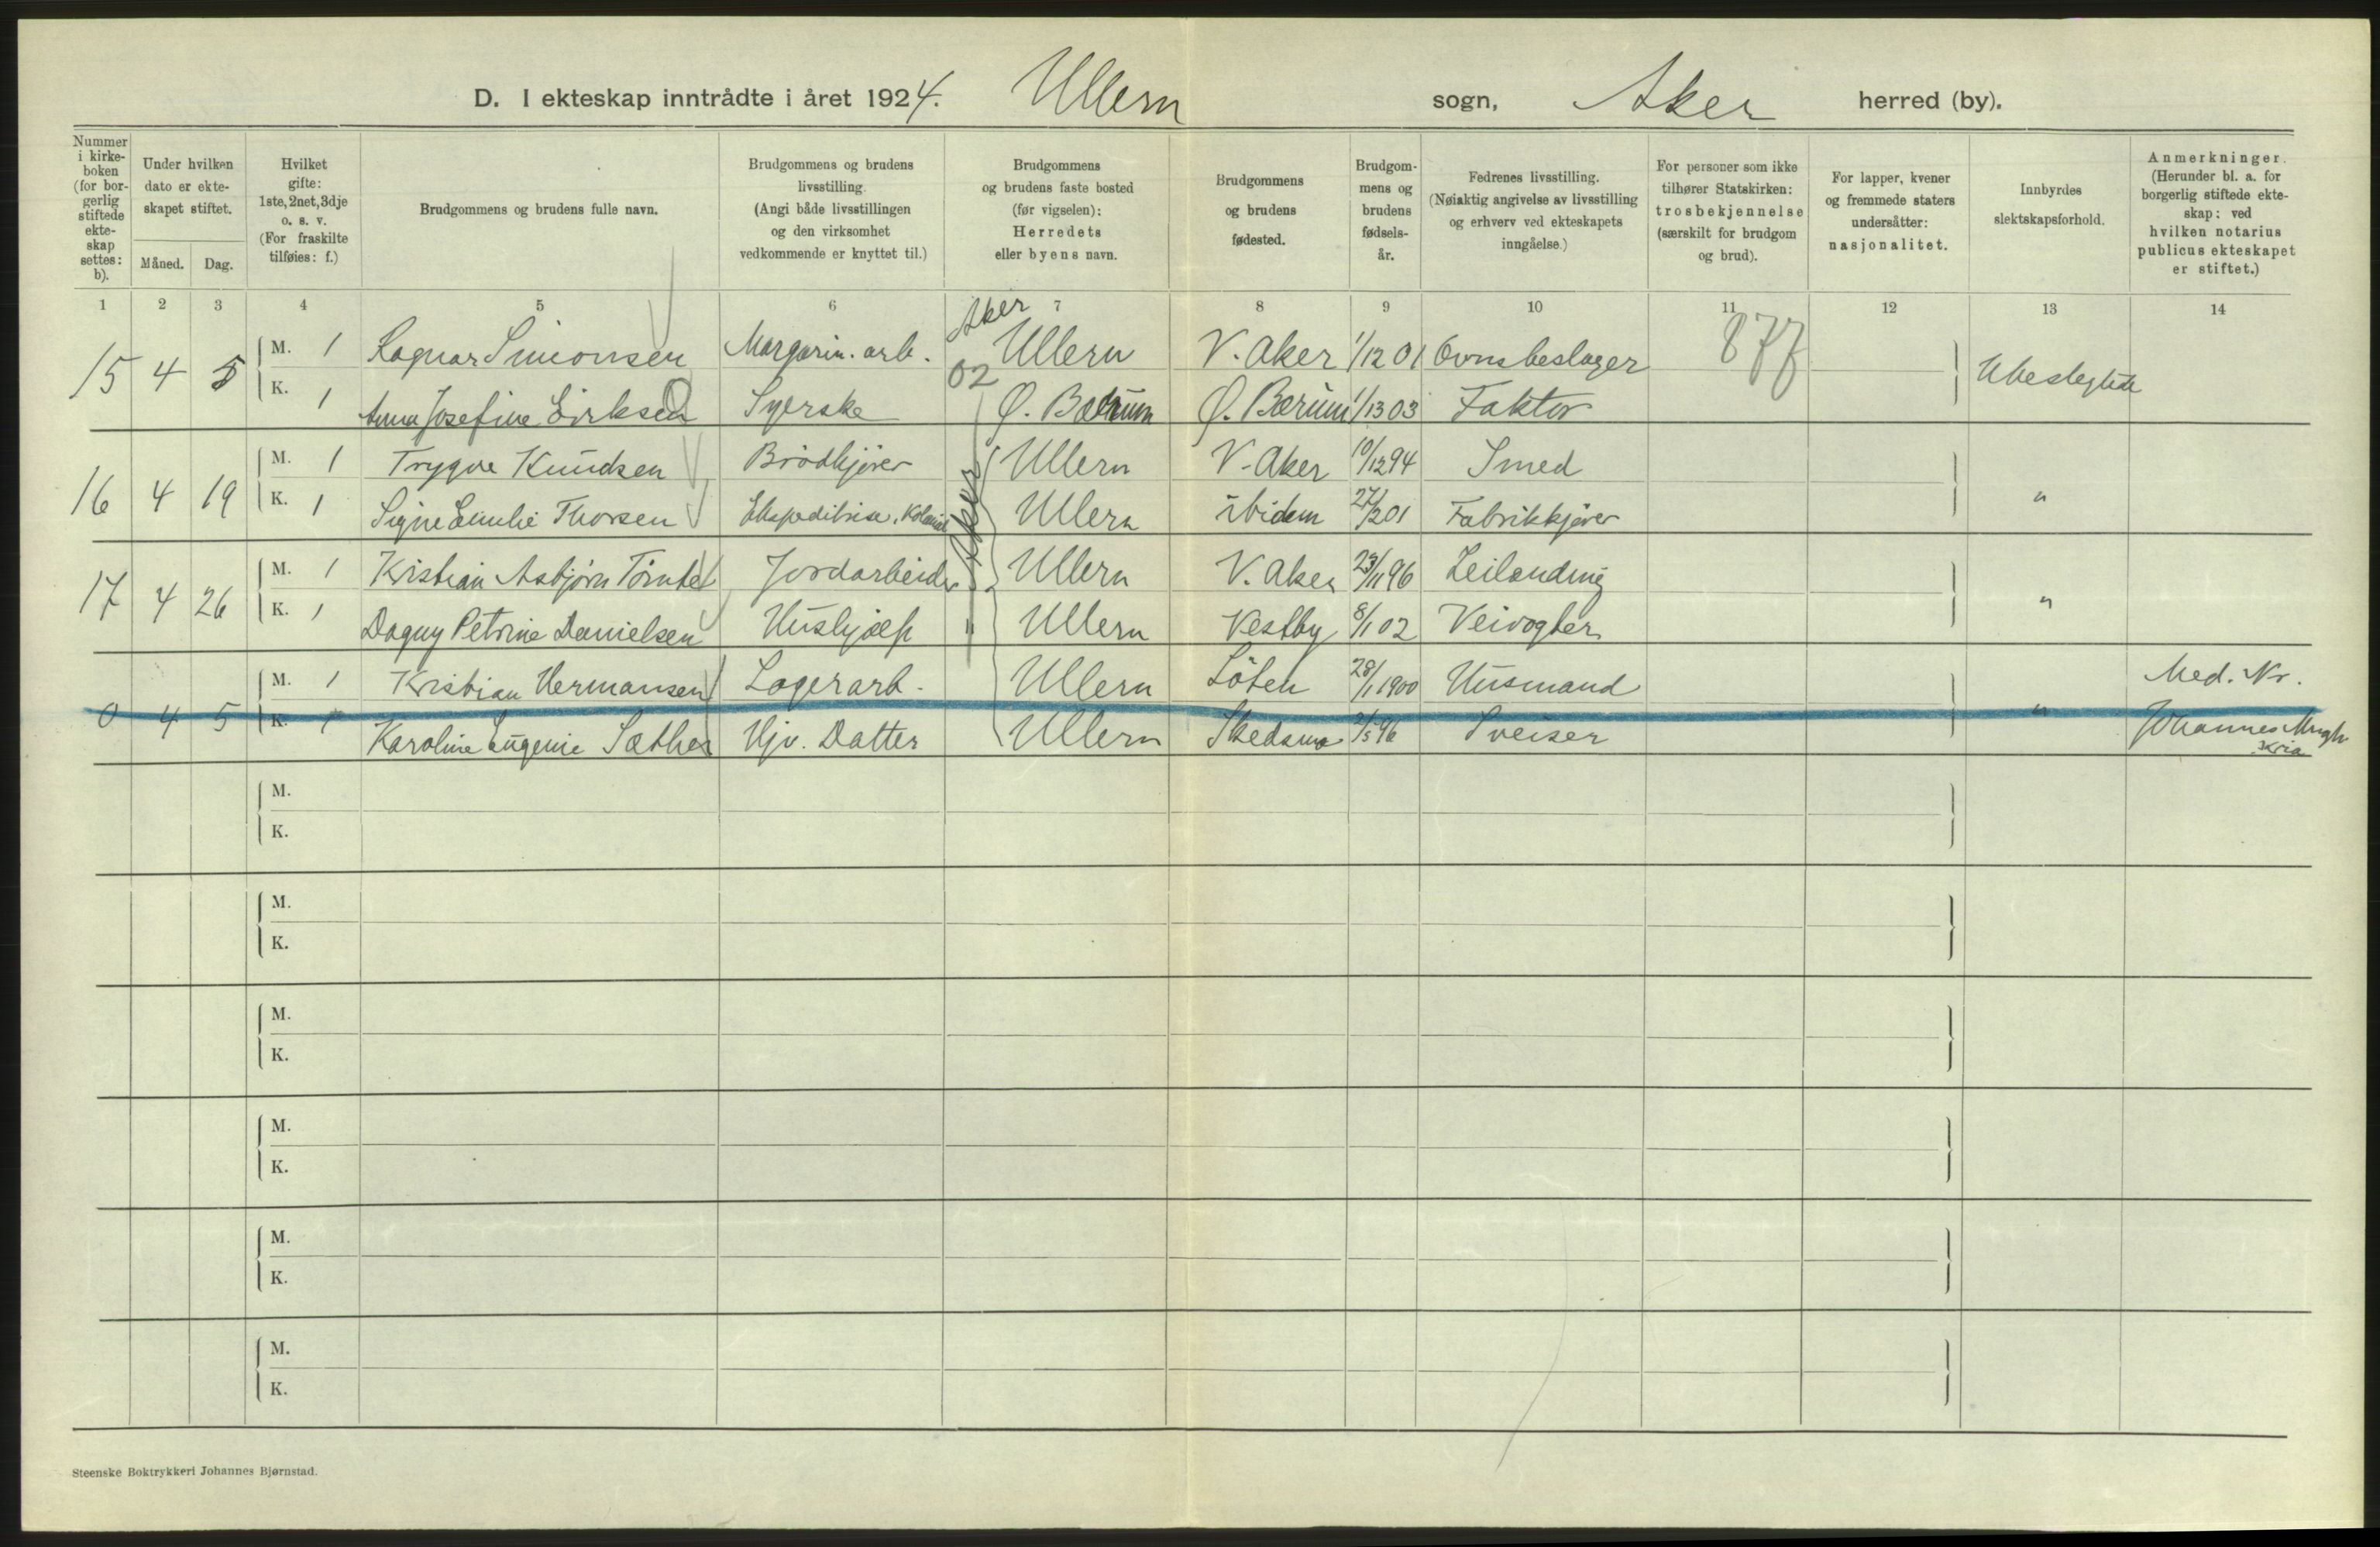 D. I ekteskap inntrådte i året 1924. Ullern sogn, Aker herred (by).
Nummer i kirke-boken (for bor-gerlig stiftede ekte-skap settes: b).
Under hvilken dato er ekte-skapet stiftet.
Måned. Dag.
Hvilket gifte: 1ste, 2net, 3dje o. s. v. (For fraskilte tilføies: f.)
Brudgommens og brudens fulle navn.
Brudgommens og brudens livsstilling. (Angi både livsstillingen og den virksomhet vedkommende er knyttet til.)
Brudgommens og brudens faste bosted (før vigselen): Herredets eller byens navn.
Brudgommens og brudens fødested.
Brudgom-mens og brudens fødsels-år.
Fedrenes livsstilling. (Nøiaktig angivelse av livsstilling og erhverv ved ekteskapets inngåelse.)
For personer som ikke tilhører Statskirken: trosbekjennelse (særskilt for brudgom og brud).
For lapper, kvener og fremmede staters undersåtter: nasjonalitet.
Innbyrdes slektskapsforhold.
Anmerkninger. (Herunder bl. a. for borgerlig stiftede ekte-skap: ved hvilken notarius publicus ekteskapet er stiftet.)
1 2 3 4 5 6 7 8 9 10 11 12 13 14
Aker
15 4 5 M. 1 Ragnar Simonsen Margarin. arb. Ullern V. Aker 1/12 01 Ovnsbeslager 877 Ubeslegtede
02
K. 1 Anna Josefine Eriksen Syerske Ø. Bærum Ø. Bærum 1/13 03 Faktor
16 4 19 M. 1 Trygve Knudsen Brødkjører Aker Ullern V. Aker 10/12 94 Smed "
K. 1 Signe Emilie Thorsen Ekspeditrise, Kolonial Ullern ibidem 27/2 01 Fabrikkjører
17 4 26 M. 1 Kristian Asbjørn Jordarbeider Ullern V. Aker 23/11 96 Leilending "
K. 1 Dagny Petrine Danielsen Hushjælp " Ullern Vestby 8/1 02 Veivogter
0 4 5 M. 1 Kristian Hermansen Lagerarb. Ullern Löten 28/1 1900 Husmand " Med. Nr.
K. 1 Karoline Eugenie Sæther Hjv. Datter Ullern Skedsmo 2/5 96 Sveiser Johannes
Kria
M.
K.
M.
K.
M.
K.
M.
K.
M.
K.
M.
K.
Steenske Boktrykkeri Johannes Bjørnstad.